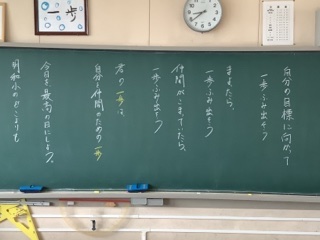 一歩
自分の目標に向かって
一歩ふみ出そう
まよったら、
一歩ふみ出そう
仲間がこまっていたら、
一歩ふみ出そう
君の一歩は、
自分と仲間のための一歩
今日を最高の日にしよう。